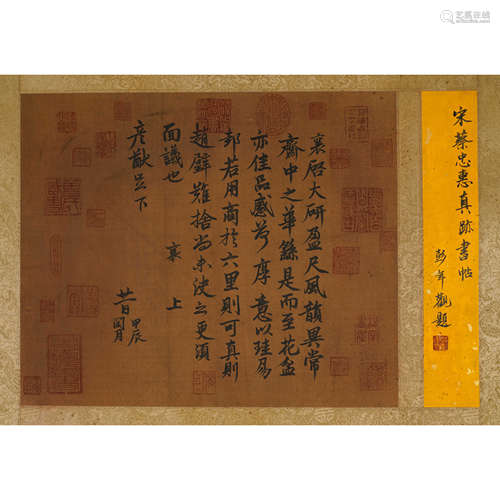 宋蔡忠惠真跡書帖
彭年觀題
襄啓大研盈尺風韻異常
齋中之華繇是而至花盆
亦佳品感荷厚意以珪易
邽若用商於六里則可真則
趙璧難捨尚未決之更須
面議也 襄 上
彥猷足下
甲辰
閏月